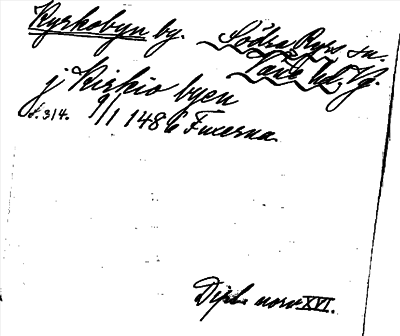 Kyrkobyn by. Södra Ryrs sn.
Väne hd, Vg.
j Kirkio byen
s. 314. 9/1 1486 Fuxerna.
Dipl. norv XVI.